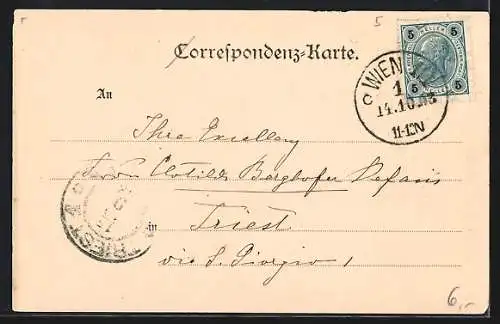 5
Correspondenz-Karte.
5 5
5 5
WIEN
1
14.10.03
11-12N
An
Ihre Excellenz
Clotilde Berghofer
in Triest
via S. Giorgio 1
TRIEST
6,-